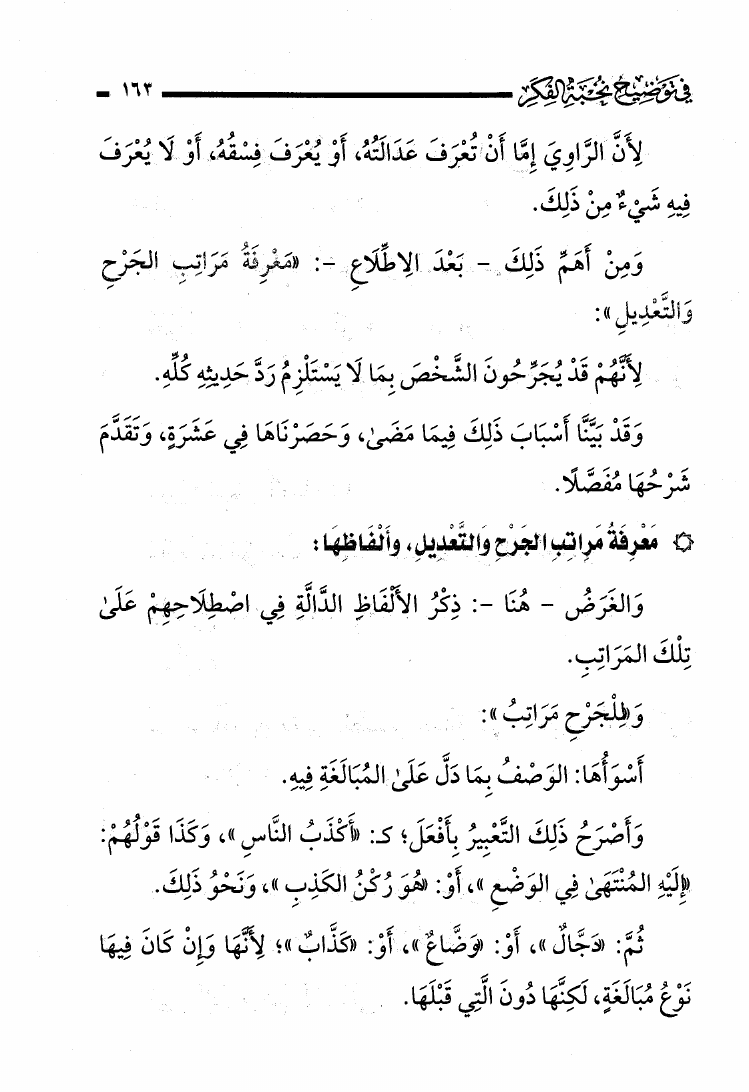 في توضيح نخبة الفكر ١٦٣
لِأَنَّ الرَّاوِيَ إِمَّا أَنْ تُعْرَفَ عَدَالَتُهُ، أَوْ يُعْرَفَ فِسْقُهُ، أَوْ لَا يُعْرَفَ
فِيهِ شَيْءٌ مِنْ ذَلِكَ.
وَمِنْ أَهَمِّ ذَلِكَ – بَعْدَ الِاطِّلَاعِ –: «مَعْرِفَةُ مَرَاتِبِ الجَرْحِ
وَالتَّعْدِيلِ»:
لِأَنَّهُمْ قَدْ يُجَرِّحُونَ الشَّخْصَ بِمَا لَا يَسْتَلْزِمُ رَدَّ حَدِيثِهِ كُلِّهِ.
وَقَدْ بَيَّنَّا أَسْبَابَ ذَلِكَ فِيمَا مَضَىٰ، وَحَصَرْنَاهَا فِي عَشَرَةٍ، وَتَقَدَّمَ
شَرْحُهَا مُفَصَّلًا.
۞ مَعْرِفَةُ مَرَاتِبِ الجَرْحِ وَالتَّعْدِيلِ، وَأَلْفَاظِهَا:
وَالغَرَضُ – هُنَا –: ذِكْرُ الأَلْفَاظِ الدَّالَّةِ فِي اصْطِلَاحِهِمْ عَلَىٰ
تِلْكَ المَرَاتِبِ.
وَ«لِلْجَرْحِ مَرَاتِبُ»:
أَسْوَأُهَا: الوَصْفُ بِمَا دَلَّ عَلَىٰ المُبَالَغَةِ فِيهِ.
وَأَصْرَحُ ذَلِكَ التَّعْبِيرُ بِأَفْعَلَ؛ كـ: «أَكْذَبُ النَّاسِ»، وَكَذَا قَوْلُهُمْ:
«إِلَيْهِ المُنْتَهَىٰ فِي الوَضْعِ»، أَوْ: «هُوَ رُكْنُ الكَذِبِ»، وَنَحْوُ ذَلِكَ.
ثُمَّ: «دَجَّالٌ»، أَوْ: «وَضَّاعٌ»، أَوْ: «كَذَّابٌ»؛ لِأَنَّهَا وَإِنْ كَانَ فِيهَا
نَوْعُ مُبَالَغَةٍ، لَكِنَّهَا دُونَ الَّتِي قَبْلَهَا.